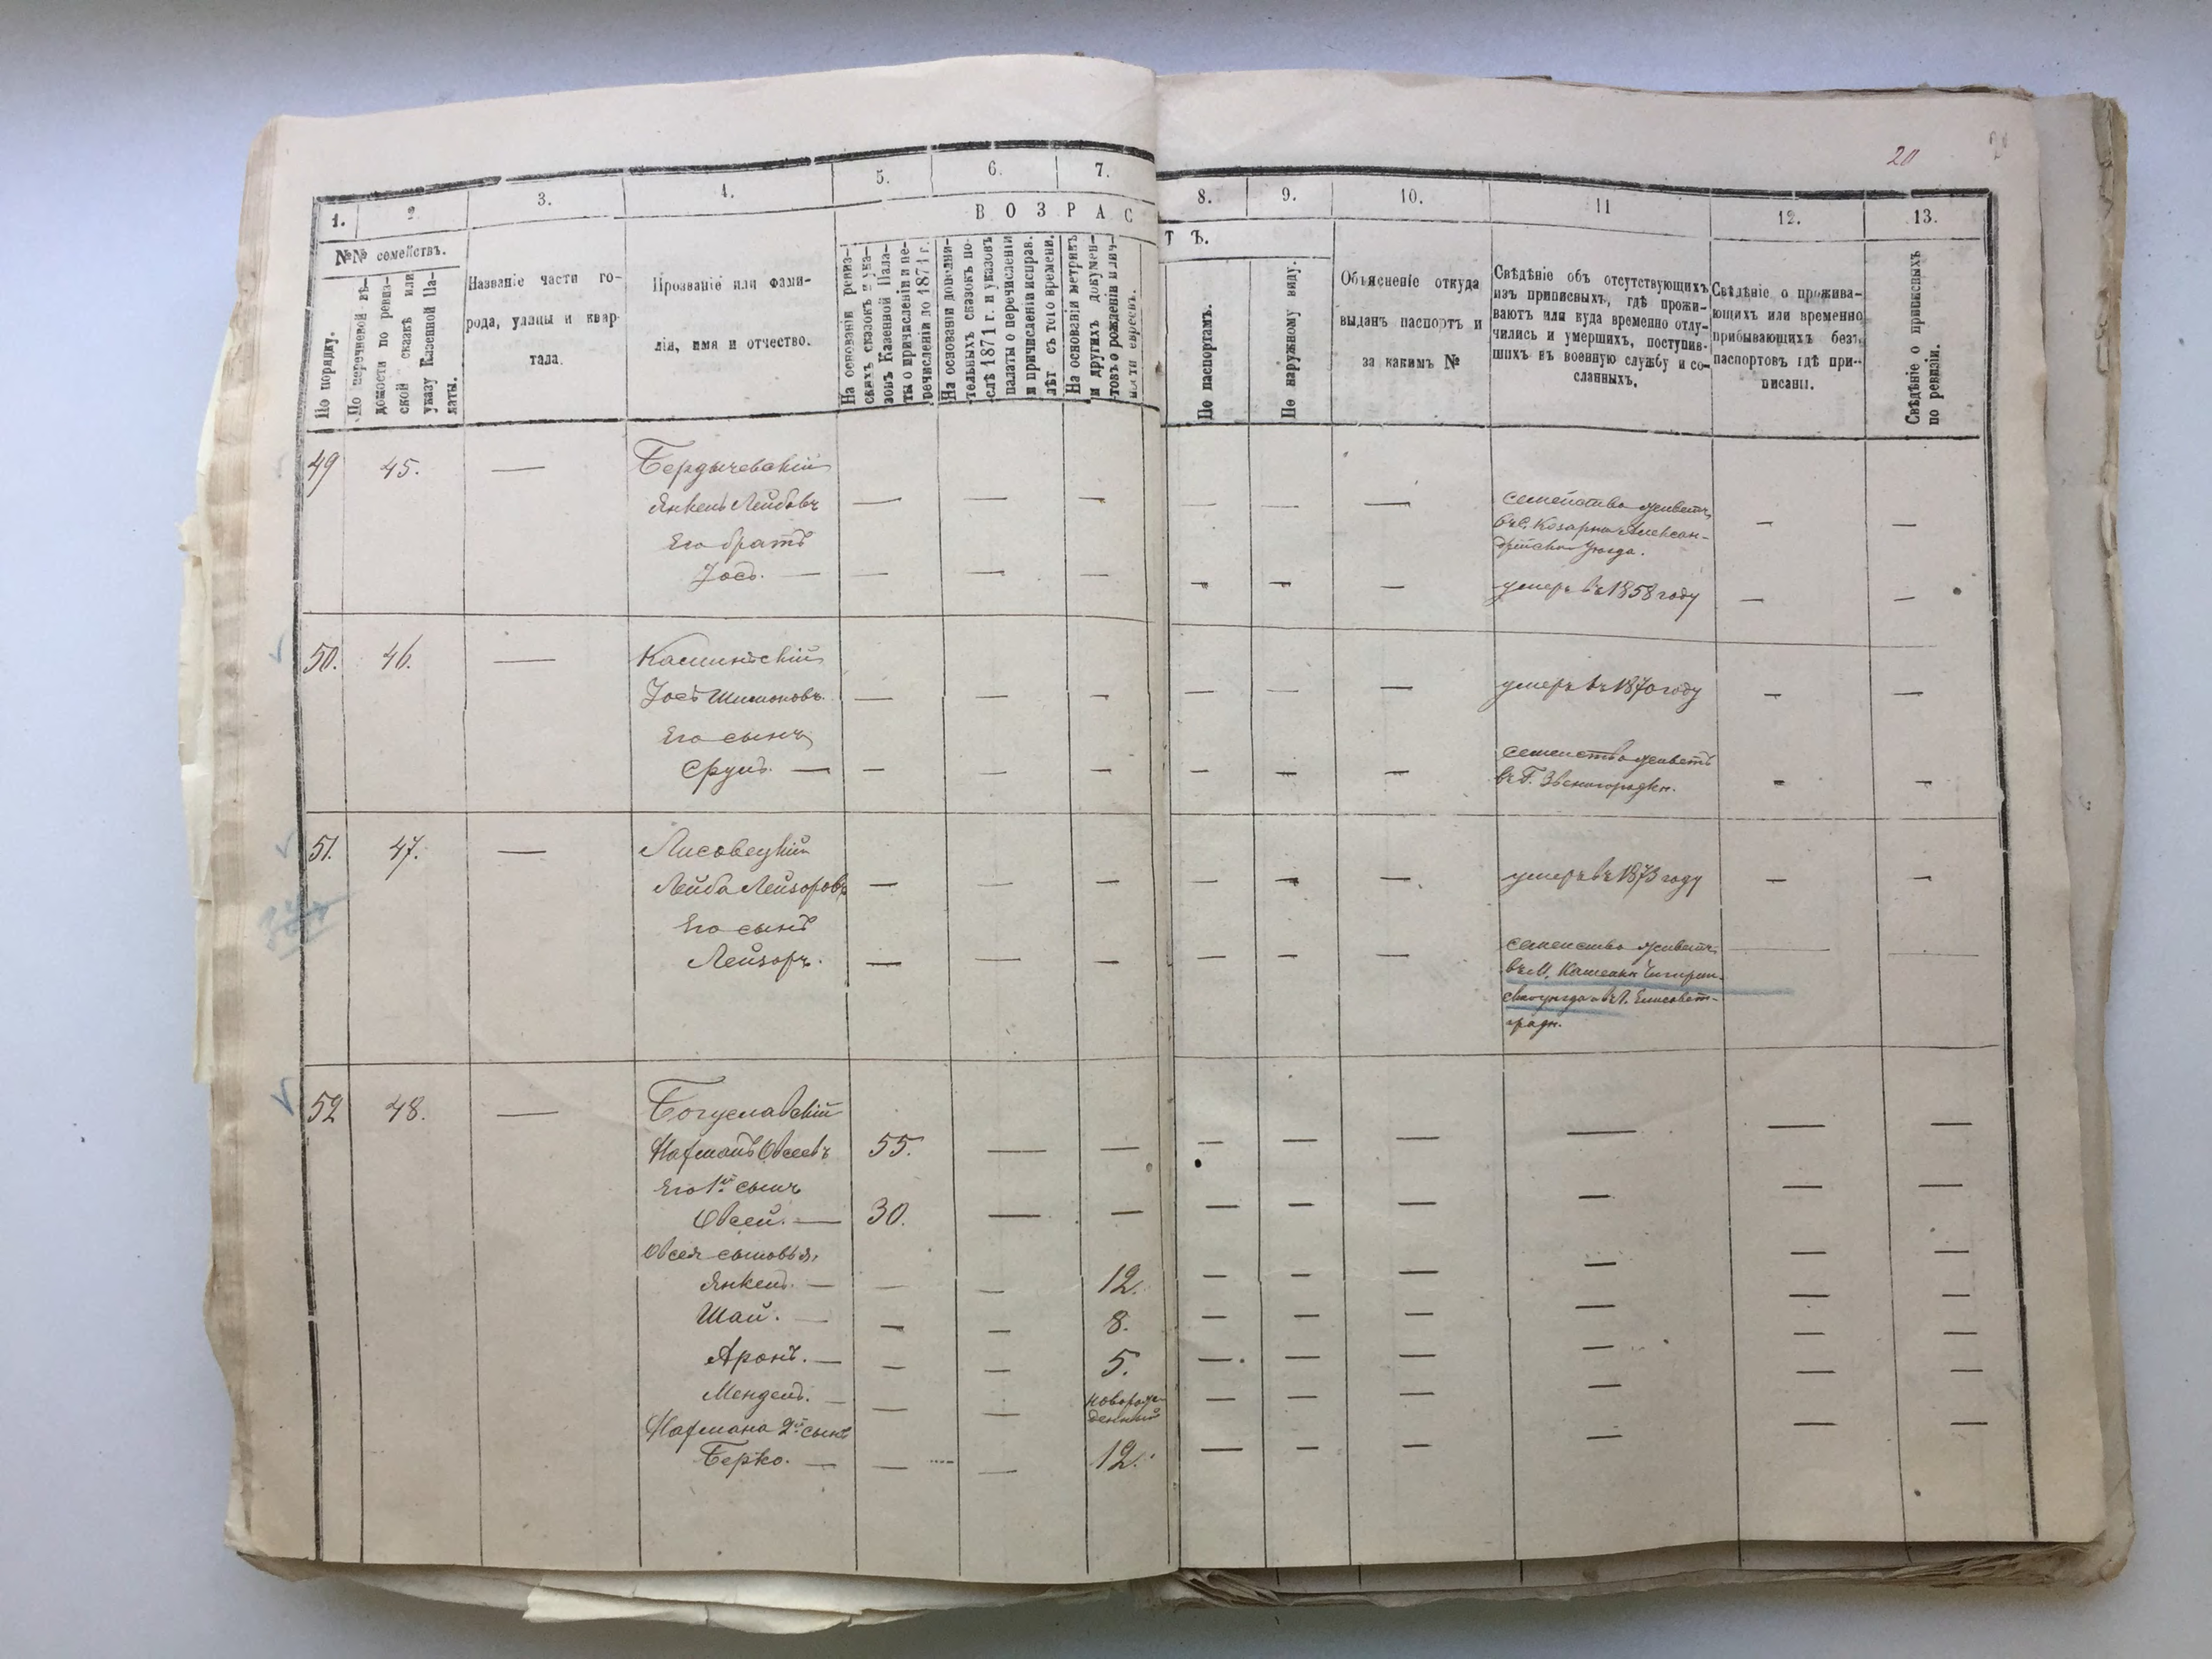 20
1.
2
3.
4.
5.
6.
7.
8.
9.
10.
11
12.
13.
№№ семействъ.
По порядку.
По перечневой вѣ-
домости по ревиз-
ской сказкѣ или
указу Казенной Па-
латы.
Названіе части го-
рода, улицы и квар-
тала.
Прозваніе или фами-
лія, имя и отчество.
ВОЗРАС
ТЪ.
На основаніи ревиз-
скихъ сказокъ и ука-
зовъ Казенной Пала-
ты о причисленіи и пе-
речисленіи до 1871 г.
На основаніи дополни-
тельныхъ сказокъ по-
слѣ 1871 г. и указовъ
палаты о перечисленіи
и причисленіи исправ.
лѣт съ того времени.
На основаніи метрикъ
и другихъ докумен-
товъ о рожденіи и лич-
ности евреевъ.
По паспортамъ.
По наружному виду.
Объясненіе откуда
выданъ паспортъ и
за какимъ №
Свѣдѣніе объ отсутствующихъ
изъ приписныхъ, гдѣ прожи-
ваютъ или куда временно отлу-
чились и умершихъ, поступив-
шихъ въ военную службу и со-
сланныхъ.
Свѣдѣніе о прожива-
ющихъ или временно
прибывающихъ безъ
паспортовъ гдѣ при-
писаны.
Свѣдѣніе о приписныхъ
по ревизіи.
49 45. — Бердычевскій
Янкель Лейбовъ — — — — — — семейство живетъ — —
въ с. Козарна Алексан-
Его братъ
дрійскаго уѣзда.
Іось. — — — — — — — умеръ въ 1858 году — —
50. 46. — Каминскій
Іось Шимоновъ. — — — — — — умеръ въ 1870 году — —
Его сынъ
Сруль. — — — — — — — семейство живетъ — —
въ Г. Звенигородкѣ.
51. 47. — Лисовецкій
Лейба Лейзоровъ — — — — — — умеръ въ 1873 году — —
Его сынъ
Лейзоръ. — — — — — — семейство живетъ — —
въ М. Каменки Чигирин-
скаго уѣзда и въ Г. Елисовет-
градѣ.
52 48. — Богуславскій
Нахманъ Овсеевъ 55. — — — — — — — —
Его 1й сынъ
Овсей. — 30. — — — — — — — —
Овсея сыновья,
Янкель. — — — 12. — — — — — —
Шай. — — — 8. — — — — — —
Аронъ. — — — 5. — — — — — —
Мендель. — — — новорож-
денный — — — — — —
Нахмана 2й сынъ
Берко. — — — 12. — — — — — —